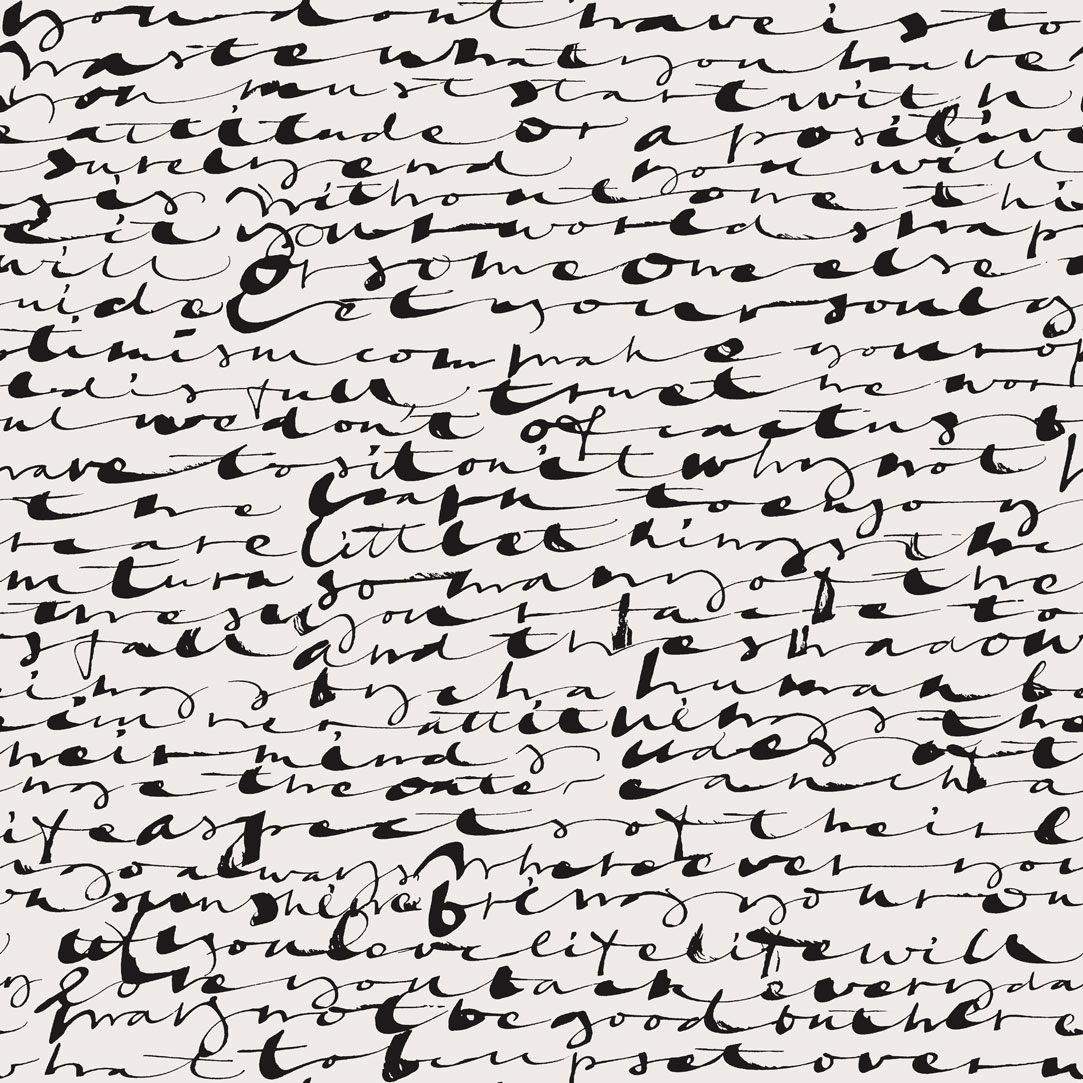 you dont have is to
waste what you have
you must start with
attitude or a positive
surely end you will
is without one thi
it your world shap
will or someone else
uide Let your soul g
timism com make your op
ld is full trust he wor
ul we dont of cactus
have to sit on it why not
the learn to enjoy
re are little things the
m turn so many of the
the sun your face to
s fall and the shadow
ing s by cha human b
their minds udes of t
ing the oute can cha
ife aspects of their l
go always Wherever you
n sunshine bring your own
if you love life life will
love you back everyda
y may not be good but there
what to be upset over